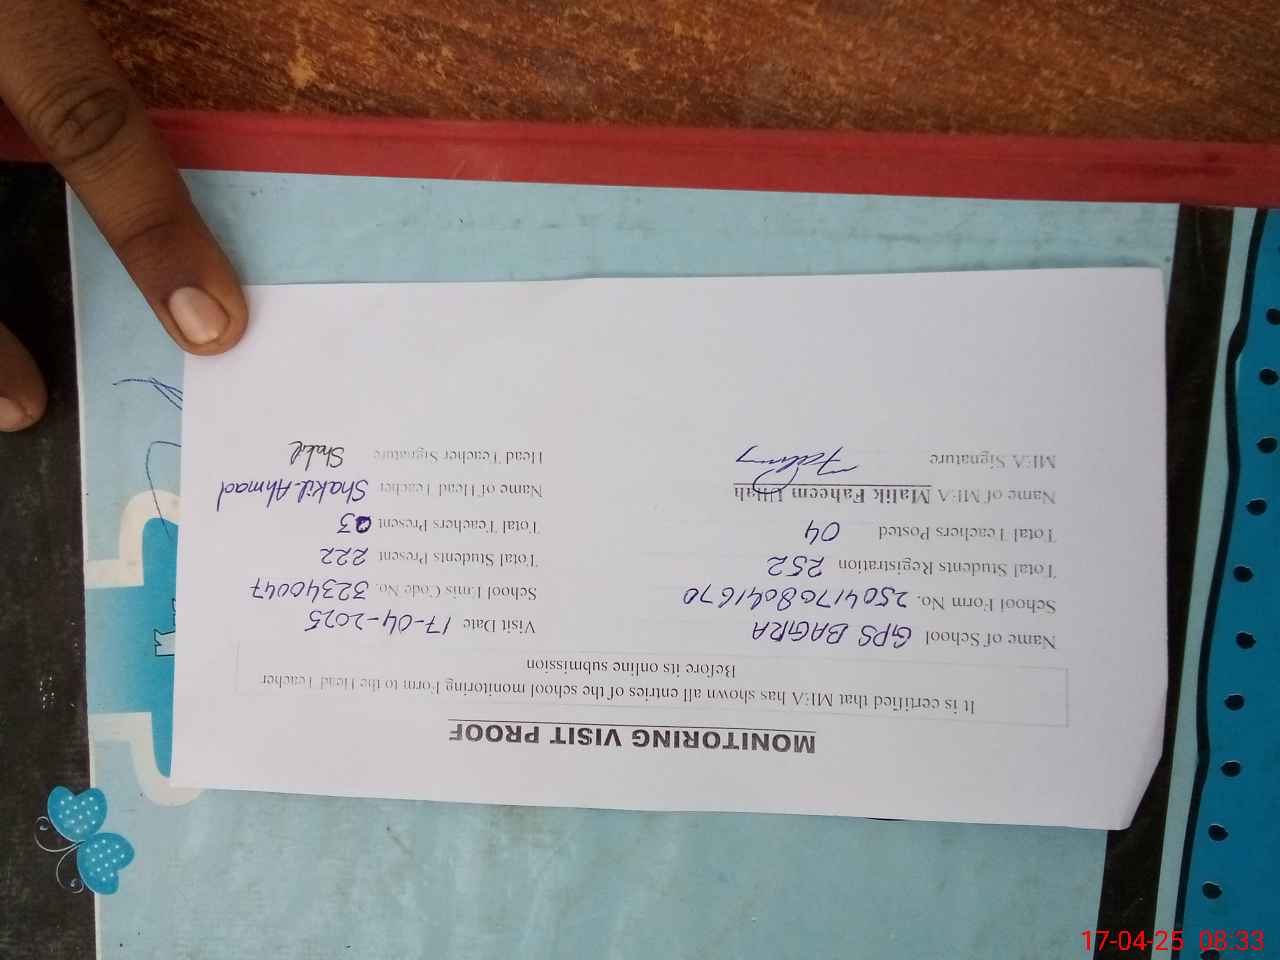 MONITORING VISIT PROOF
It is certified that MEA has shown all entries of the school monitoring Form to the Head Teacher
Before its online submission
Name of School GPS BAGRA Visit Date 17-04-2025
School Form No. 25041708041670 School Emis Code No. 32340047
Total Students Registration 252 Total Students Present 222
Total Teachers Posted 04 Total Teachers Present 03
Name of MEA Malik Faheem Ullah Name of Head Teacher Shakil Ahmad
MEA Signature Head Teacher Signature Shakil
17-04-25 08:33